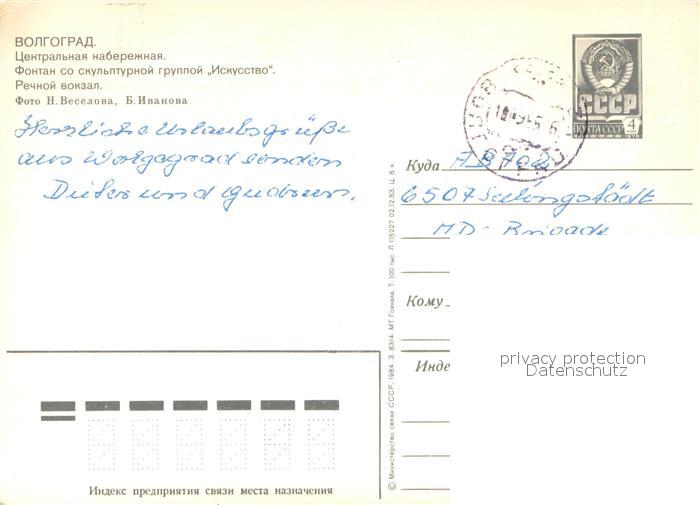 ВОЛГОГРАД.
Центральная набережная.
Фонтан со скульптурной группой „Искусство".
Речной вокзал.
Фото Н. Веселова, Б. Иванова
Herzliche Urlaubsgrüße
aus Wolgograd senden
Dieter und Gudrun.
СССР
ПОЧТА СССР
4
Куда
6507
MD - Brigade
Кому
Инде
privacy protection
Datenschutz
© Министерство связи СССР, 1984. З. 8314. МТ Гознака. Т. 100 тыс. Л 115227 02.12.83. Ц. 6 к.
Индекс предприятия связи места назначения